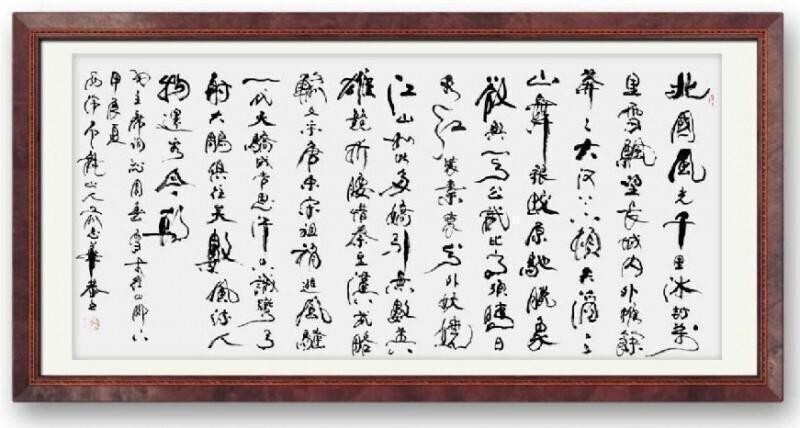 北國風光千里冰封萬
里雪飄望長城內外惟餘
莽々大河上下頓失滔々
山舞銀蛇原馳蠟象
欲與天公試比高須晴日
看紅裝素裹分外妖嬈
江山如此多嬌引無數英
雄競折腰惜秦皇漢武略
輸文采唐宗宋祖稍遜風騷
一代天驕成吉思汗只識彎弓
射大鵰俱往矣數風流人
物還看今朝
主席詞沁園春雪
甲辰夏
龍山人 志華